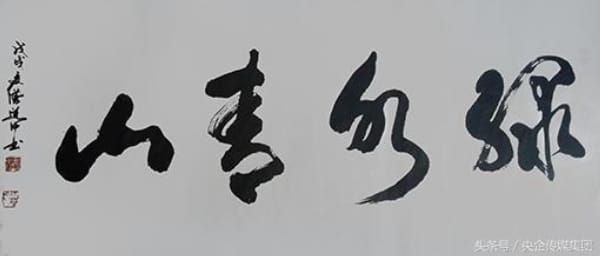 绿水青山
戊戌
书
头条号 / 央企传媒集团